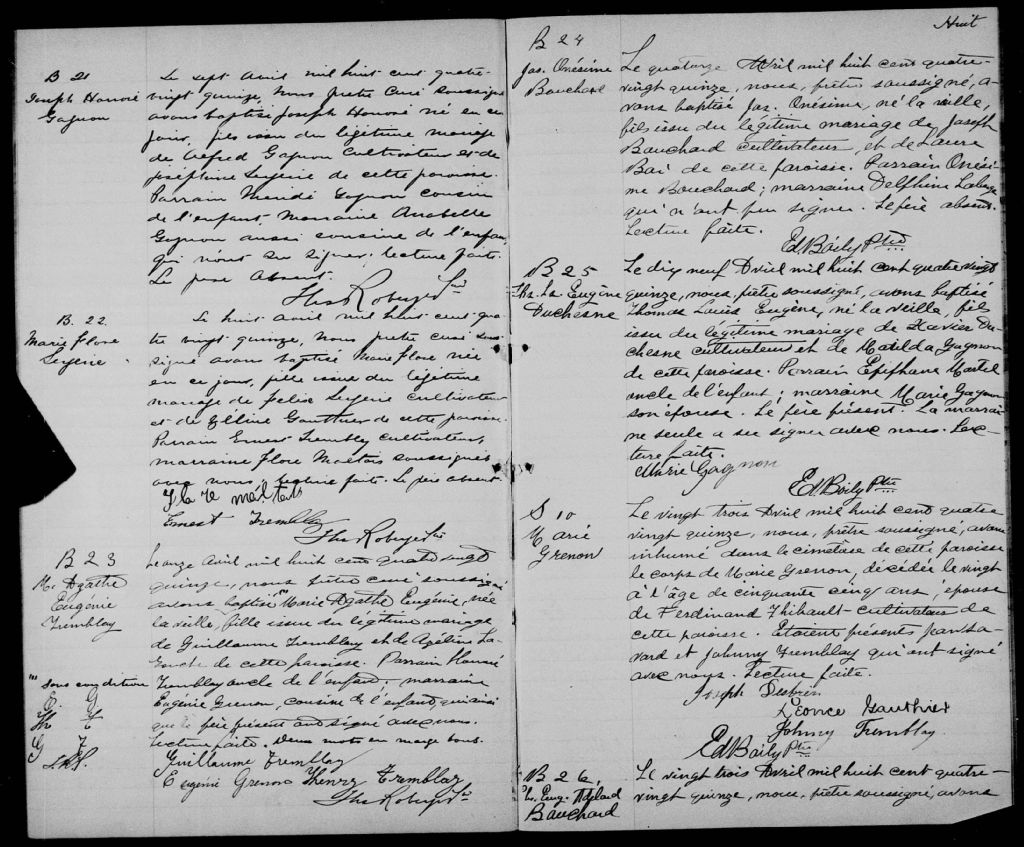 B 21
Joseph Honoré
Gagnon
Le sept Avril mil huit cent quatre-
vingt quinze, nous pretre curé soussigné
avons baptisé Joseph Honoré né en ce
jour, fils issu du légitime mariage
de Alfred Gagnon cultivateur et de
de cette paroisse.
Parrain Gagnon cousin
de l'enfant Marraine
Gagnon aussi cousine de l'enfant,
qui nont su signer. lecture faite.
Le pere Absent.
Ths Roberge Ptre
B. 22.
Marie Flore
Le huit avril mil huit cent qua-
tre vingt quinze, nous pretre curé sous-
signé avons baptisé Marie Flore née
en ce jour, fille issue du légitime
mariage de Felix cultivateur
et de Gauthier de cette paroisse.
Parrain Ernest Tremblay cultivateur,
marraine Flore Maltais soussignés
avec nous, lecture faite. Le père absent.
Flore maltais
Ernest Tremblay
Ths Roberge Ptre
B 23
M. Agathe
Eugénie
Tremblay
Le onze Avril mil huit cent quatre vingt
quinze, nous prêtre curé soussigné
avons baptisé Marie Agathe Eugénie, née
la veille, fille issue du légitime mariage
de Guillaume Tremblay et de
de cette paroisse. Parrain
Tremblay oncle de l'enfant; marraine
Eugénie Grenon, cousine de l'enfant, qui ainsi
que le père présent ont signé avec nous.
Lecture faite. Deux mots en marge bons.
sous condition
E. G
Th T
G T
Guillaume Tremblay
Eugénie Grenon Thenry Tremblay
Ths Roberge Ptre
Huit
B 24
Jos. Onésime
Bouchard
Le quatorze Avril mil huit cent quatre-
vingt quinze, nous, prêtre soussigné, a-
vons baptisé Jos. Onésime, né la veille,
fils issu du légitime mariage de Joseph
Bouchard cultivateur, et de Laure
de cette paroisse. Parrain Onési-
me Bouchard; marraine Delphine
qui n'ont pu signer. Le père absent.
Lecture faite.
Ed Boily Ptre
B 25
Ths. Ls Eugène
Duchesne
Le dix neuf Avril mil huit cent quatre vingt
quinze, nous, prêtre soussigné, avons baptisé
Thomas Louis Eugène, né la veille, fils
issu du légitime mariage de Xavier Du-
chesne cultivateur et de Matilda Gagnon
de cette paroisse. Parrain Epiphane Martel
oncle de l'enfant; marraine Marie Gagnon
son épouse. Le père présent. La marrai-
ne seule a su signer avec nous. Lec-
ture faite.
Marie Gagnon
Ed Boily Ptre
S 10
Marie
Grenon
Le vingt trois Avril mil huit cent quatre
vingt quinze, nous, prêtre soussigné, avons
inhumé dans le cimetière de cette paroisse
le corps de Marie Grenon, décédée le vingt
à l'âge de cinquante cinq ans, épouse
de Ferdinand Thibault cultivateur de
cette paroisse. Etaient présents Jean Sa-
vard et Johnny Tremblay qui ont signé
avec nous. Lecture faite.
Joseph
Léonce Gauthier
Johnny Tremblay
Ed Boily Ptre
B 26.
Eug. Adelard
Bouchard
Le vingt trois Avril mil huit cent quatre-
vingt quinze, nous, prêtre soussigné, avons